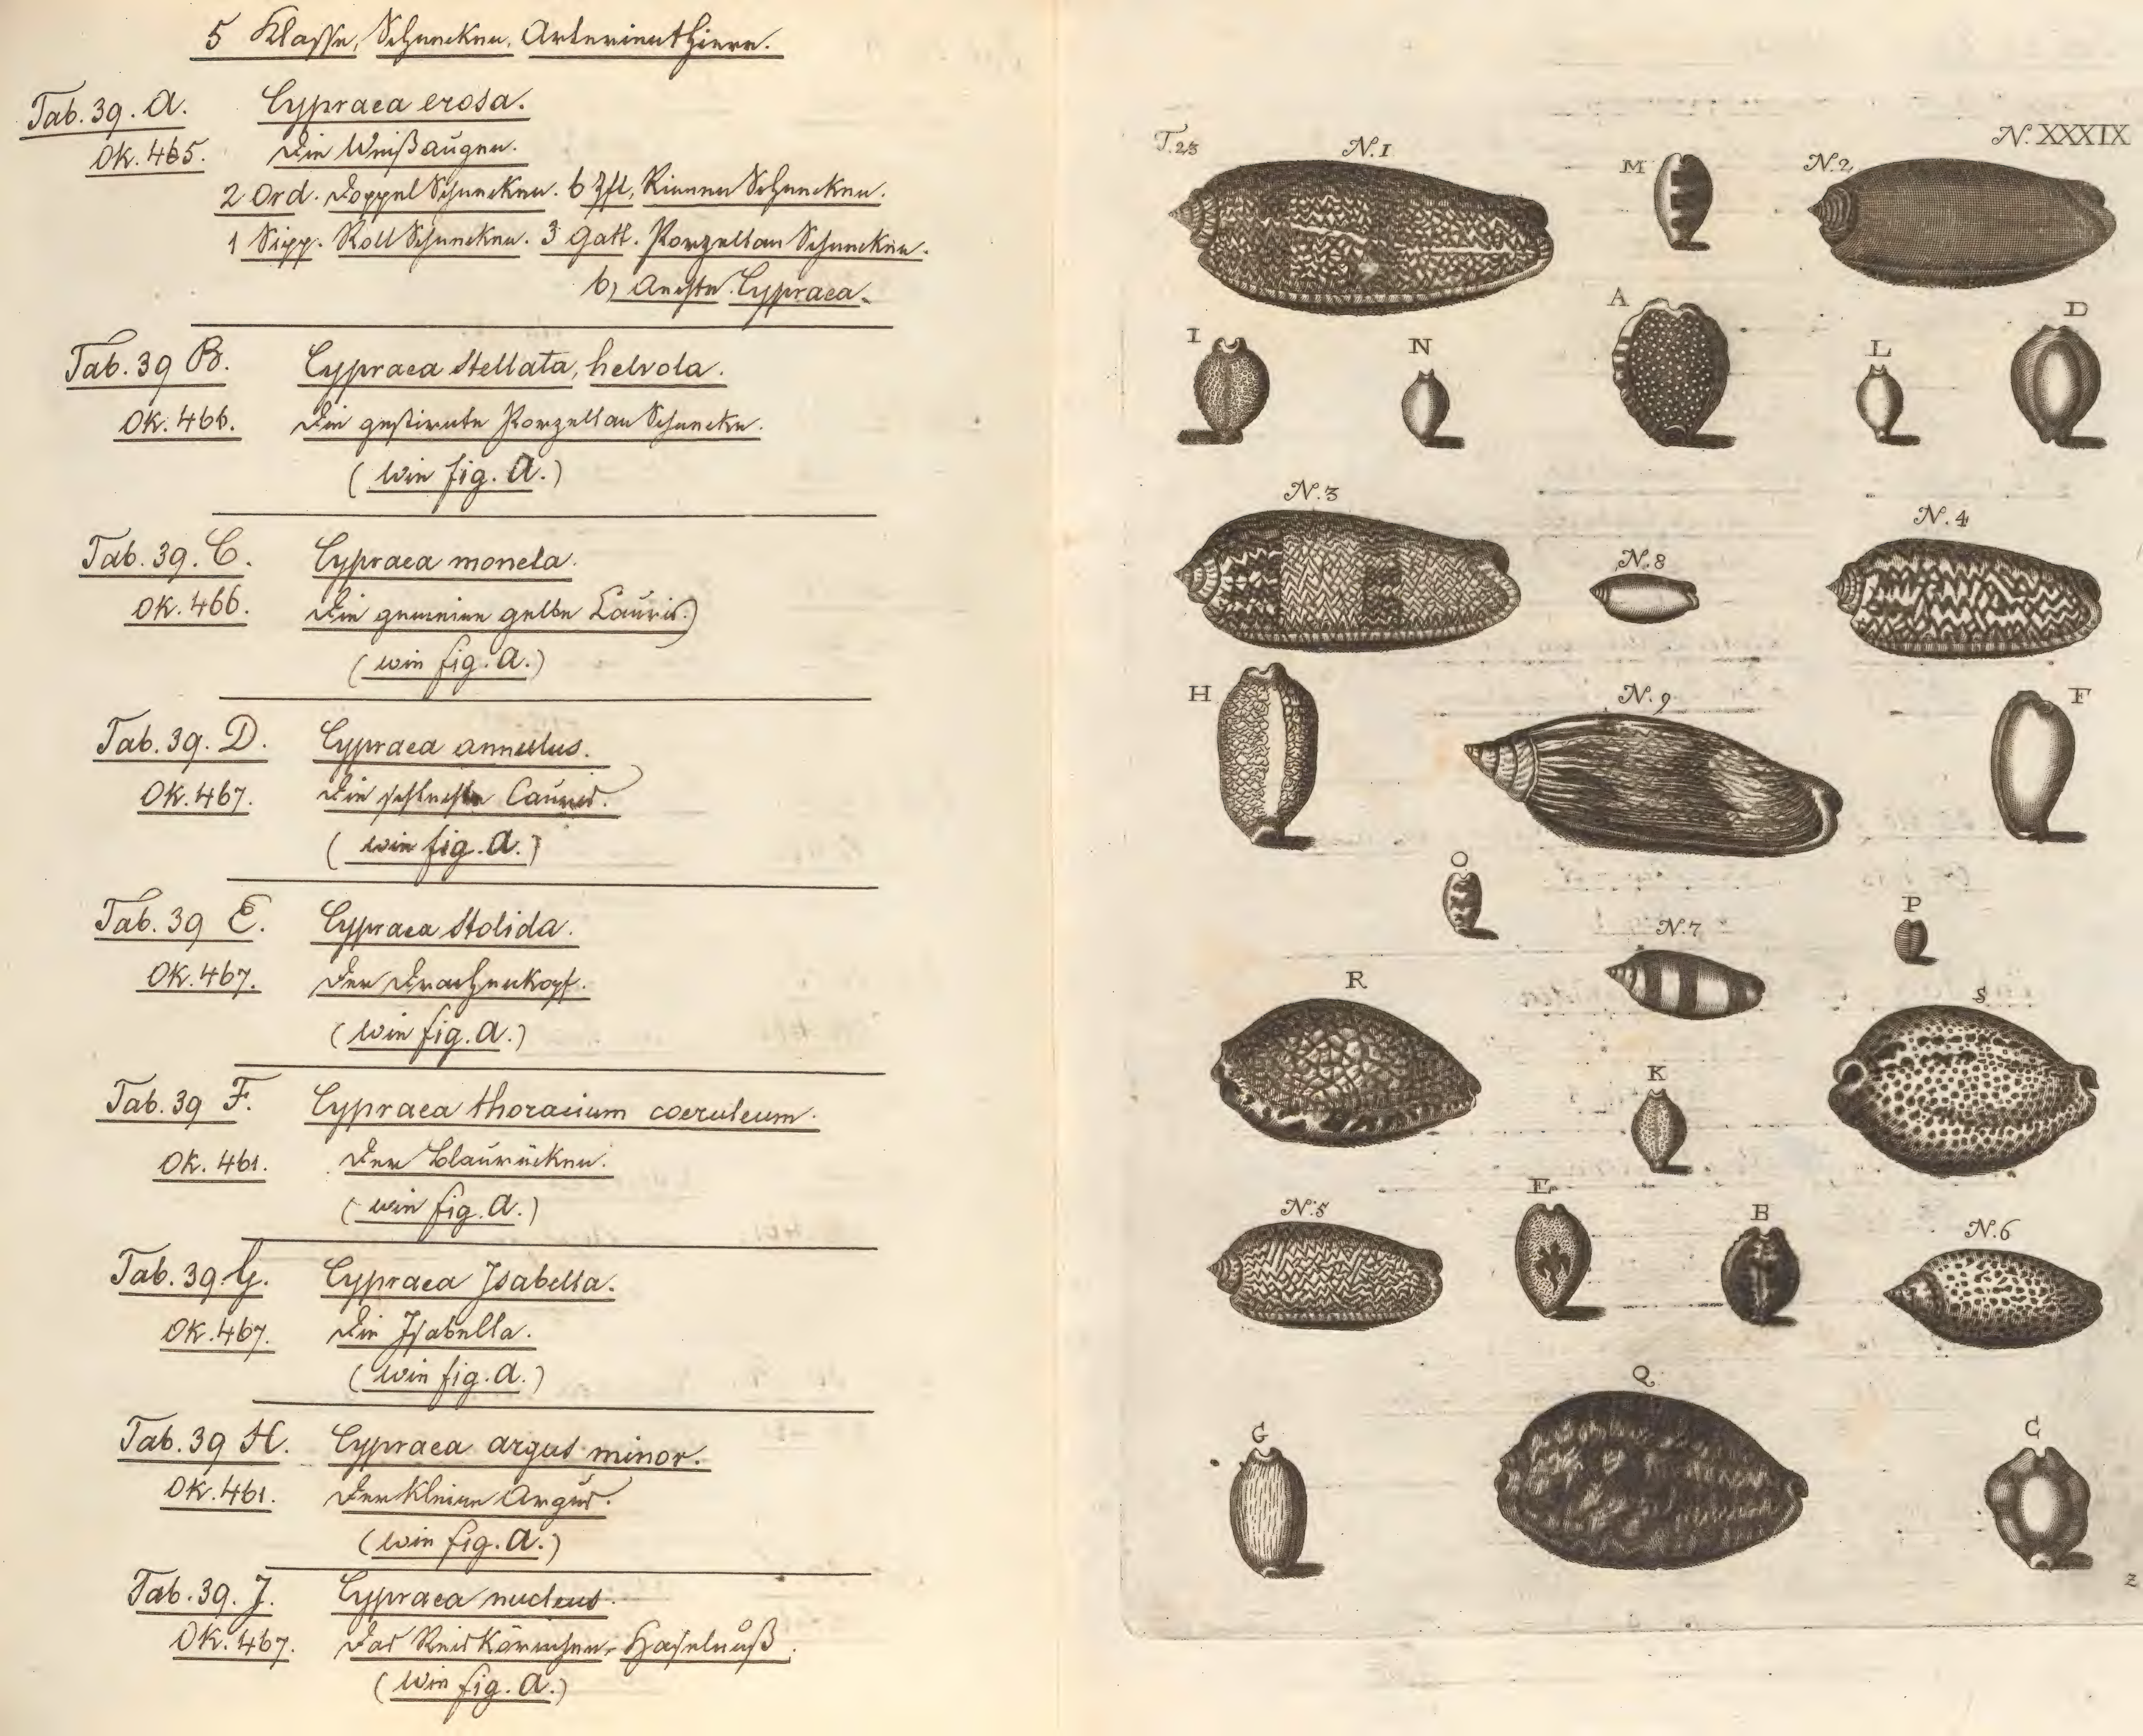 5 Klasse, Schnecken, Arterienthiere.
Tab. 39. A. Cypraea erosa.
Ok. 465. Die Weißaugen.
2 Ord. Doppel Schnecken. 6 Zft. Rinnen Schnecken.
1 Sipp. Roll Schnecken. 3 Gatt. Porzellan Schnecken.
b, Aechte Cypraea.
Tab. 39 B. Cypraea stellata, helvola.
Ok. 466. Die gestirnte Porzellan Schnecke.
(wie fig. A.)
Tab. 39. C. Cypraea moneta.
Ok. 466. Die gemeine gelbe Cauris.)
(wie fig. A.)
Tab. 39. D. Cypraea annulus.
Ok. 467. Die schlechte Cauris.
(wie fig. A.)
Tab. 39 E. Cypraea stolida.
Ok. 467. Der Drachenkopf.
(wie fig. A.)
Tab. 39 F. Cypraea thoracium coeruleum.
Ok. 461. Der Blaurücken.
(wie fig. A.)
Tab. 39. G. Cypraea Isabella.
Ok. 467. Die Isabella.
(wie fig. A.)
Tab. 39 H. Cypraea argus minor.
Ok. 461. Der kleine Argus.
(wie fig. A.)
Tab. 39. J. Cypraea nucleus.
Ok. 467. Das Reiskörnchen, Haselnuß.
(wie fig. A.)
T. 23 N. 1 M N. 2 N. XXXIX
I N A L D
N. 3 N. 8 N. 4
H N. 9 F
O N. 7 P
R K S
N. 5 E B N. 6
G Q C
Z